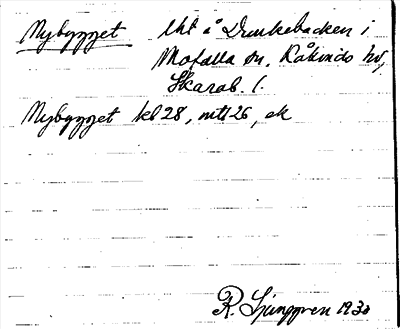 Nybygget lht å Drinkebacken i
Mofalla sn, Kåkinds hd,
Skarab. l.
Nybygget kl 28, mtl 26, ek
R. Ljunggren 1930